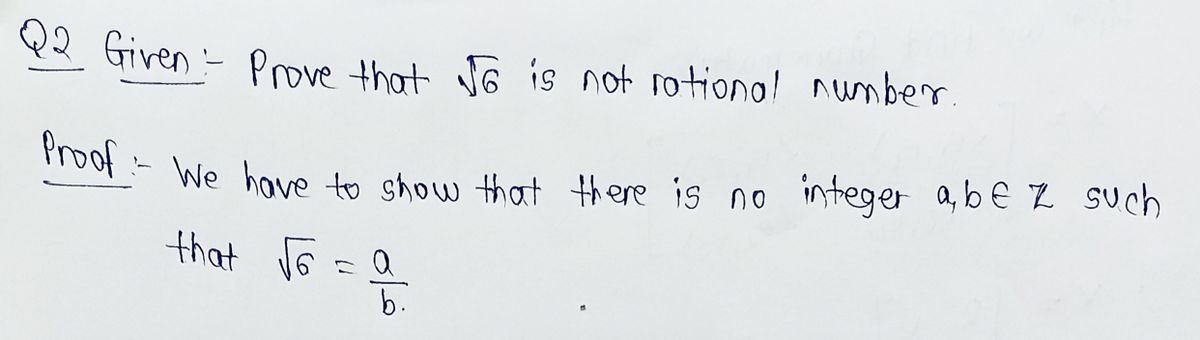 Q2 Given :- Prove that √6 is not rational number.
Proof :- We have to show that there is no integer a, b ∈ Z such
that √6 = a/b.